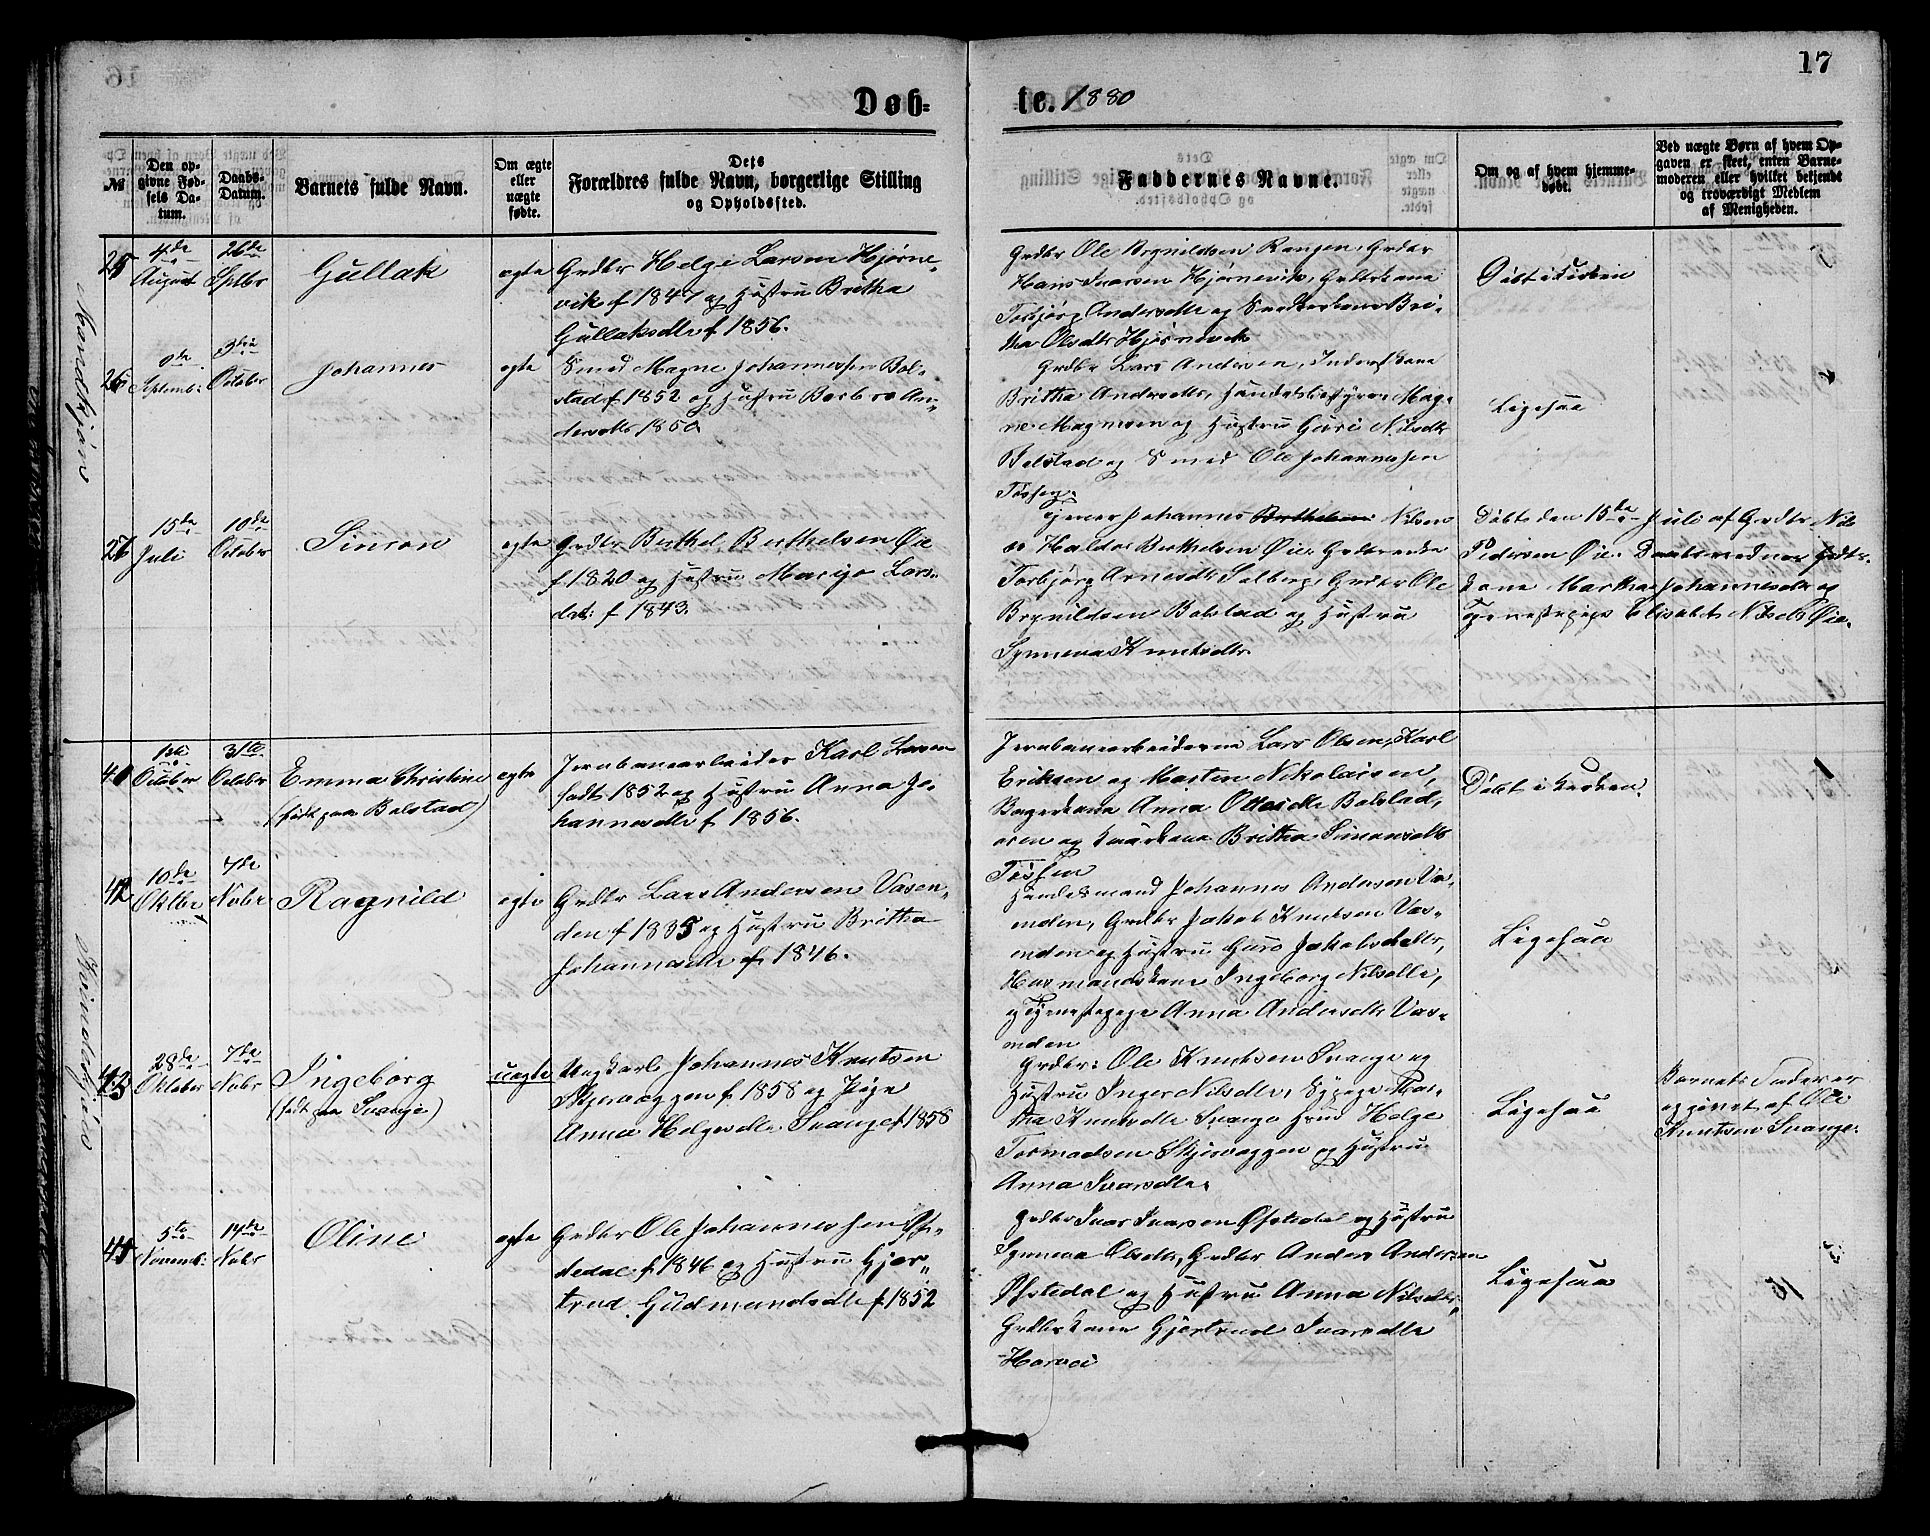 17
Døb-
te. 1880
№
Den op-
givne Fød-
sels Da-
tum.
Daabs-
Datum.
Barnets fulde Navn.
Om ægte
eller
uægte
fødte.
Dets
Forældres fulde Navn, borgerlige Stilling
og Opholdssted.
Faddernes Navne.
Om og af hvem hjemme-
døbt.
Ved uægte Børn af hvem Op-
gaven er skeet, enten Barne-
moderen eller hvilket bekjendt
og troværdigt Medlem
af Menigheden.
25
4de
August
26de
Septbr
Gullak
ægte
Grdbr Helge Larsen Hjørne-
vik f 1847 og Hustru Britha
Gullaksdtr f. 1856.
Grdbr Ole Brynildsen Rongen, Grdbr
Hans Ivarsen Hjørnevik, Grdbrkone
Torbjørg Andersdtr og Bri-
tha Olsdtr Hjørnevik
Døbt i Kirken
26
Septemb:
3die
October
Johannes
ægte
Smed Magne Johannessen Bol-
stad f 1852 og Hustru Barbro An-
dersdtr 1850.
Grdbr Lars Andersen,
Britha Andersdtr, Handelsbestyrer Mag-
ne Magnesen og Hustru Guri Nilsdtr
Bolstad og Smed Ole Johannessen
Tøssen.
Ligesaa
26
15de
Juli
10de
October
Simon
ægte
Grdbr Berthel Berthelsen Øie
f 1820 og Hustru Marijo Lars-
dat: f 1843.
Tjener Johannes Nilsen
Haldor Berthelsen Øie, Grdbr
Torbjørg Arnesdtr Solberg, Grdbr Ole
Brynildsen Bolstad og Hustru
Synneva Knutsdtr.
Døbt den 15de Juli af Grdbr Nils
Pedersen Øie. Daabsvidner Grdbr-
kone Martha Johannesdtr og
Tjenestepige Elisabet Nilsdtr Øie.
Mordkjøn
41
October
31te
October
Emma Christine
(født paa Bolstad)
ægte
Jernbanearbeider Karl Larsen
født 1852 og Hustru Anna Jo-
hannesdtr f. 1856.
Jernbanearbeiderne Lars Olsen, Karl
Eriksen og Morten Nikolaisen,
Bagerkone Anna Ottosdtr Bolstad,
øren og Britha Simonsdtr
Tøssen
Døbt i Kirken.
42
10de
Oktbr
7de
Novbr
Ragnild
ægte
Grdbr Lars Andersen Vasen-
den f 1835 og Hustru Britha
Johannesdtr f. 1846.
Johannes Andersen Va-
senden, Grdbr Jakob Knutsen Vas-
enden og Hustru Guro Jakobsdtr,
Husmandskone Ingeborg Nilsdtr,
og Tjenestepige Anna Andersdtr Vas-
enden
Ligesaa
43
28de
Oktober
7de
Novbr
Ingeborg
(født paa Svange)
uægte
Ungkarl Johannes Knutsen
Skjervaggen f. 1858 og Pige
Anna Helgesdtr Svange f 1858
Grdbr: Ole Knutsen Svange og
Hustru Inger Nilsdtr, Sypige Mar-
tha Knutsdtr Svange Helge
Tormodsen Skjervaggen og Hustru
Anna Ivarsdtr.
Ligesaa
Barnets Fader er
opgivet af Ole
Knutsen Svange.
45
5te
Novemb:
14de
Novbr
Oline
ægte
Grdbr Ole Johannessen Øf-
stedal f. 1846 og Hustru Gjer-
trud Gudmundsdtr f. 1852
Grdbr Ivar Ivarsen Øfstedal og Hustru
Synneva Olsdtr, Grdbr Anders Andersen
Øfstedal og Hustru Anna Nilsdtr;
Grdbrkone Gjertrud Ivarsdtr
Horvei
Ligesaa
Kvindekjøn